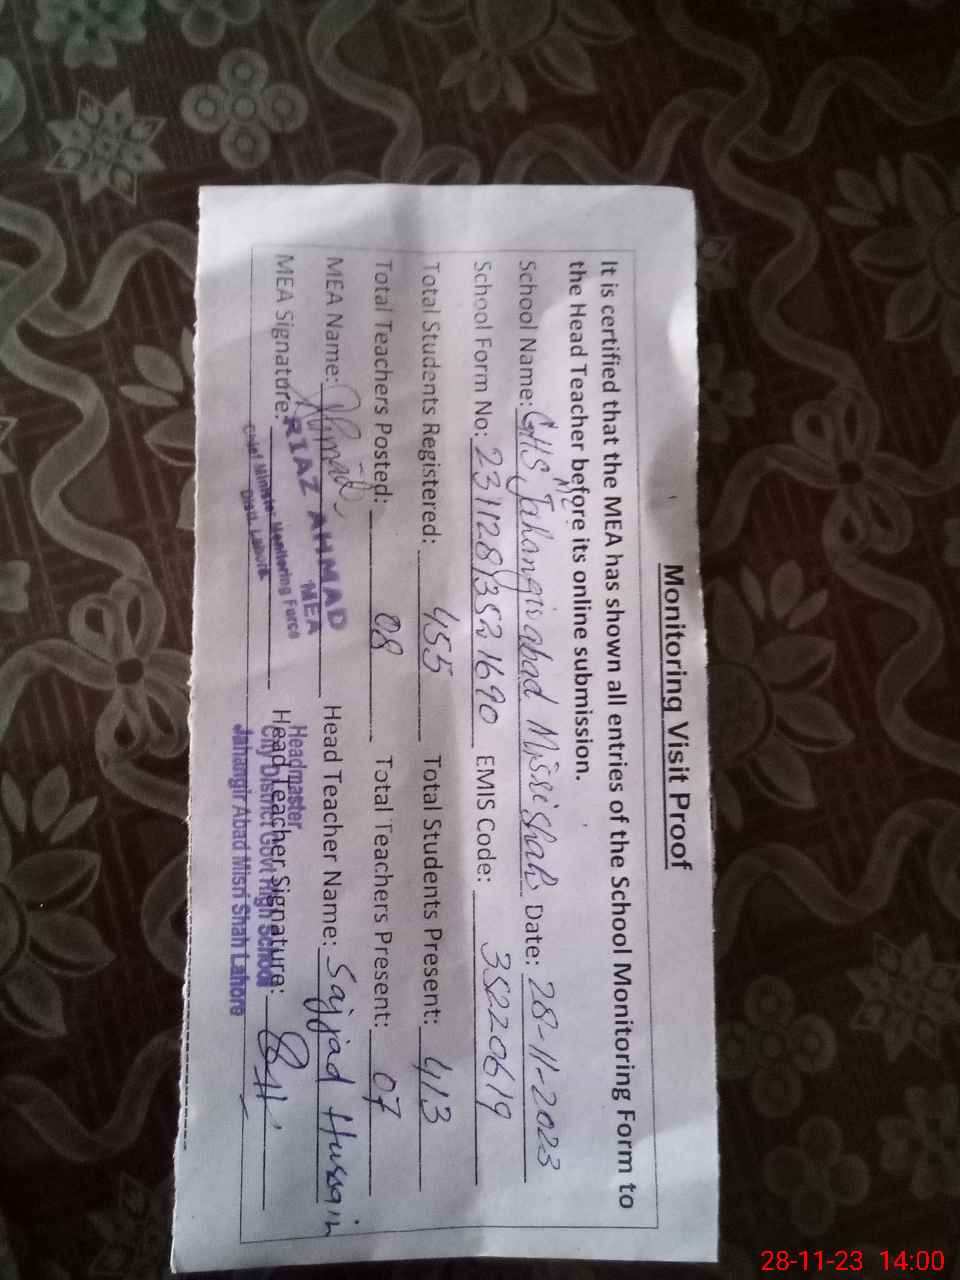 Monitoring Visit Proof
It is certified that the MEA has shown all entries of the School Monitoring Form to
the Head Teacher before its online submission.
School Name: GHS Jahangirabad Misri shah Date: 28-11-2023
School Form No: 231128/35221690 EMIS Code: 35220619
Total Students Registered: 455 Total Students Present: 413
Total Teachers Posted: 08 Total Teachers Present: 07
MEA Name: Head Teacher Name: Sajjad Hussain
MEA Signature: Head Teacher Signature:
RIAZ AHMAD
MEA
Chief Minister Monitoring Force
Distt. Lahore
Headmaster
City District Govt High School
Jahangir Abad Misri Shah Lahore
28-11-23 14:00